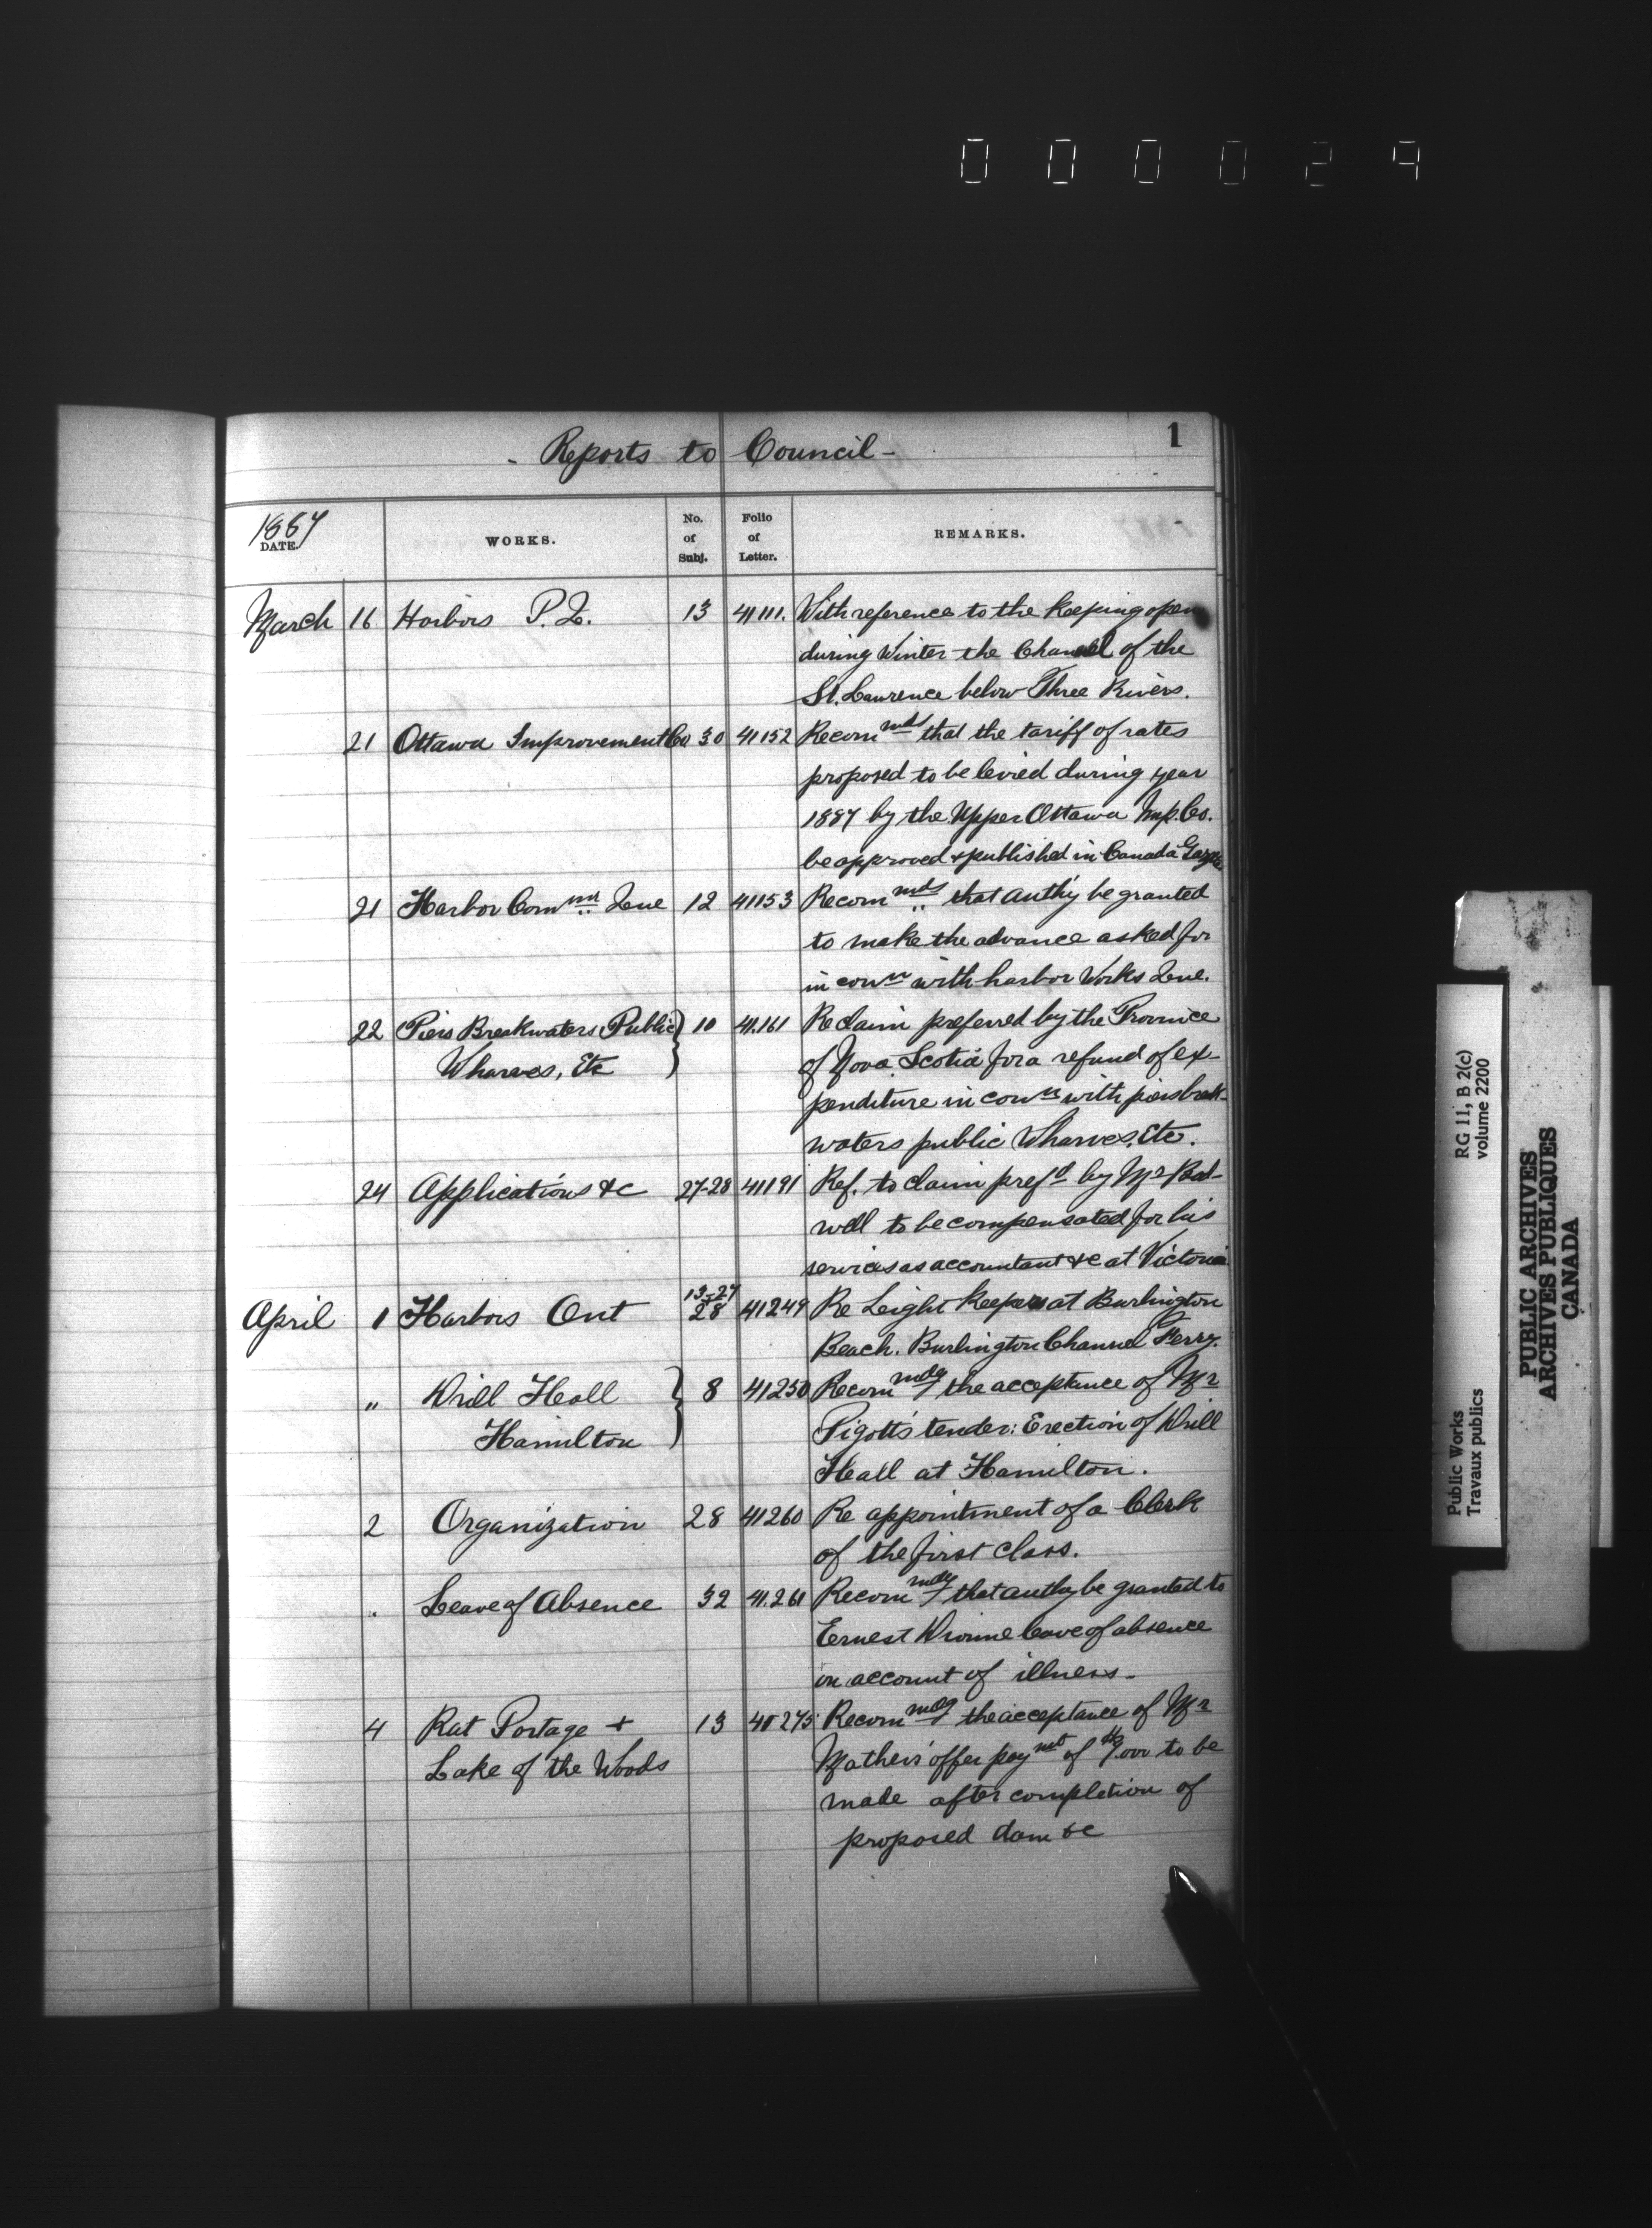 000029
- Reports to Council -
1
1887
DATE.
WORKS.
No. of Subj.
Folio of Letter.
REMARKS.
March 16 Harbors P. Q. 13 41111. With reference to the keeping open
during Winter the Channel of the
St. Lawrence below Three Rivers.
21 Ottawa Improvement Co 30 41152 Recommds that the tariff of rates
proposed to be levied during year
1887 by the Upper Ottawa Imp. Co.
be approved & published in Canada Gazte
21 Harbor Comrs Que 12 41153 Recommds that authy be granted
to make the advance asked for
in conn with harbor Works Que.
22 Piers Breakwaters Public } 10 41.161 Re claim preferred by the Province
Wharves, Etc of Nova Scotia for a refund of ex-
penditure in conn with piers break-
waters public Wharves. Etc.
24 Applications &c 27-28 41191 Ref. to claim prefd by Mr
well to be compensated for his
services as accountant &c at Victoria
April 1 Harbors Ont 13-27 28 41249 Re Leight keepers at Burlington
Beach. Burlington Channel Ferry.
" Drill Hall } 8 41250 Recommdg the acceptance of Mr
Hamilton Pigott's tender: Erection of Drill
Hall at Hamilton.
2 Organization 28 41260 Re appointment of a Clerk
of the first class.
. Leave of Absence 32 41.261 Recommdg that authy be granted to
Ernest Dionne leave of absence
on account of illness -
4 Rat Portage + 13 41275 Recommdg the acceptance of Mr
Lake of the Woods Mather's offer paymt of $7.000 to be
made after completion of
proposed dam &c
Public Works
Travaux publics
RG 11, B 2(c)
volume 2200
PUBLIC ARCHIVES
ARCHIVES PUBLIQUES
CANADA